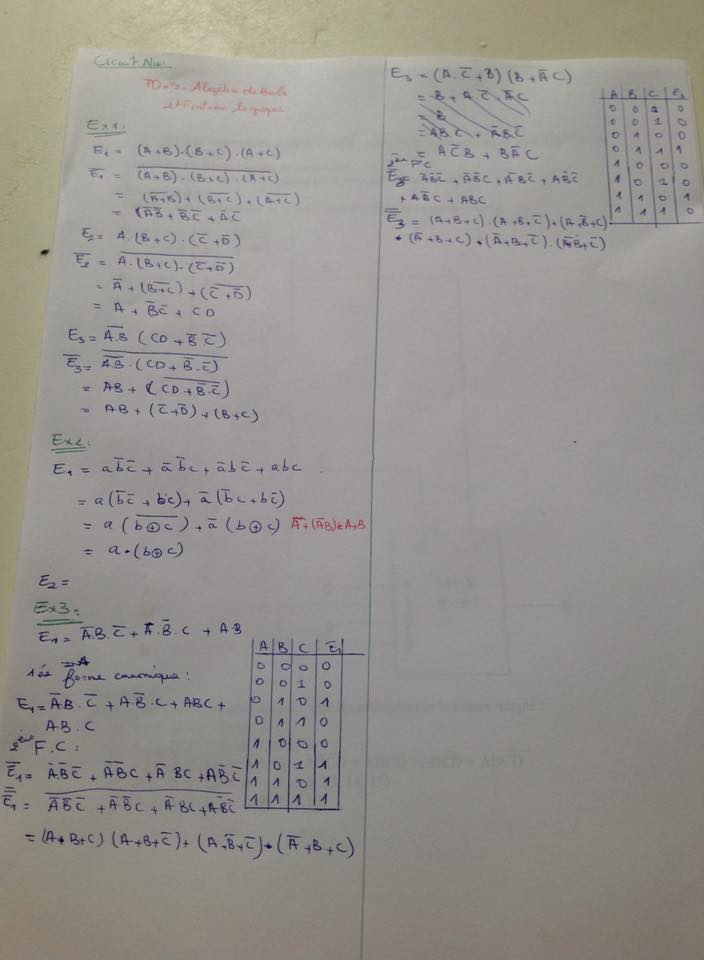 Circuit Num:
TD n°2: Algèbre de Boole
et Fonction logique
Ex1:
E₁ = (A+B).(B+C).(A+C)
E̅₁ = \overline{(A+B).(B+C).(A+C)}
= (\overline{A+B}) + (\overline{B+C}) + (\overline{A+C})
= A̅B̅ + B̅C̅ + a̅C̅
E₂ = A.(B+C).(C̅+D̅)
E̅₂ = \overline{A.(B+C).(C̅+D̅)}
= A̅ + (\overline{B+C}) + (\overline{C̅+D̅})
= A + B̅C̅ + CD
E₃ = \overline{A.B} (CD + B̅ C̅)
E̅₃ = \overline{\overline{AB}.(CD + B̅.C̅)}
= AB + (\overline{CD + B̅.C̅})
= AB + (C̅+D̅) + (B+C)
Ex2:
E₁ = ab̅c̅ + a̅b̅c + a̅bc̅ + abc
= a(b̅c̅ + bc) + a̅(b̅c + bc̅)
= a(\overline{b⊕c}) + a̅(b⊕c)
= a.(b⊕c)
E₂ =
Ex3:
E₁ = A̅.B.C̅ + A.B̅.C + A.B
1ée forme canonique:
E₁ = A̅B.C̅ + AB̅.C + ABC +
AB.C
2ème F.C:
E̅₁ = A̅B̅C̅ + A̅B̅C + A̅BC + AB̅C̅
E̿₁ = \overline{A̅B̅C̅ + A̅B̅C + A̅BC + AB̅C̅}
= (A+B+C) (A+B+C̅) + (A+B̅+C̅) . (A̅+B+C)
A B C E₁
0 0 0 0
0 0 1 0
0 1 0 1
0 1 1 0
1 0 0 0
1 0 1 1
1 1 0 1
1 1 1 1
E₃ = (A.C̅+B) (B+A̅C)
= B + A.C̅.A̅C
= B
= ABC + A̅BC
= AC̅B + BA̅C
2ème FC
+ AB̅C + ABC
A B C E₃
0 0 0
0 0 1 0
0 1 0 0
0 1 1 1
1 0 0 0
1 0 1 0
1 1 0 1
1 1 1 0